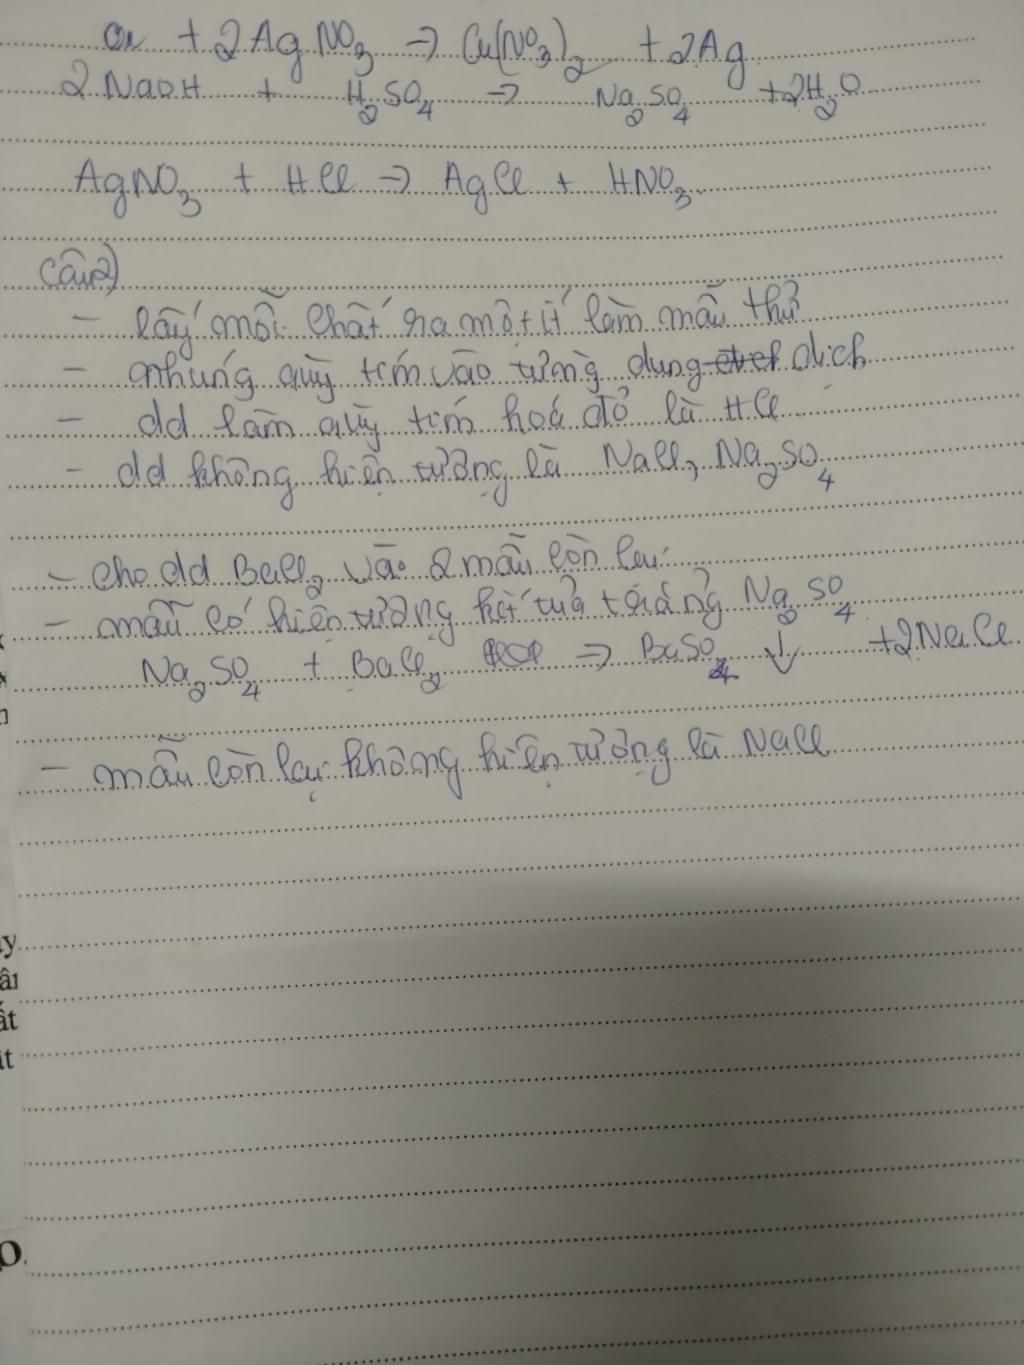 Cu + 2AgNO3 → Cu(NO3)2 + 2Ag
2NaOH + H2SO4 → Na2SO4 + 2H2O
AgNO3 + HCl → AgCl + HNO3
Câu2)
- lấy mỗi chất ra một ít làm mẫu thử
- nhúng quỳ tím vào từng dung dịch
- dd làm quỳ tím hoá đỏ là HCl
- dd không hiện tượng là NaCl, Na2SO4
- cho dd BaCl2 vào 2 mẫu còn lại
- mẫu có hiện tượng kết tủa trắng Na2SO4
Na2SO4 + BaCl2 → BaSO4 ↓ +2NaCl
- mẫu còn lại không hiện tượng là NaCl
y
ất
ít
O.